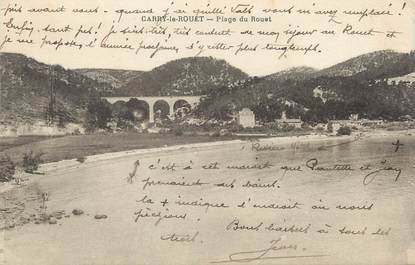 puis avant vous. quand j'ai quitté Lato vous m'avez remplacé !
Enfin, tant pis ! je suis très, très content de mon séjour au Rouet et
je me propose, l'année prochaine, d'y rester plus longtemps.
CARRY-le-ROUET — Plage du Rouet
c'est à cet endroit que et Jean
prenaient des bains.
la + indique l'endroit où nous
pêchions.
Bons baisers à tous les
trois.
Jean